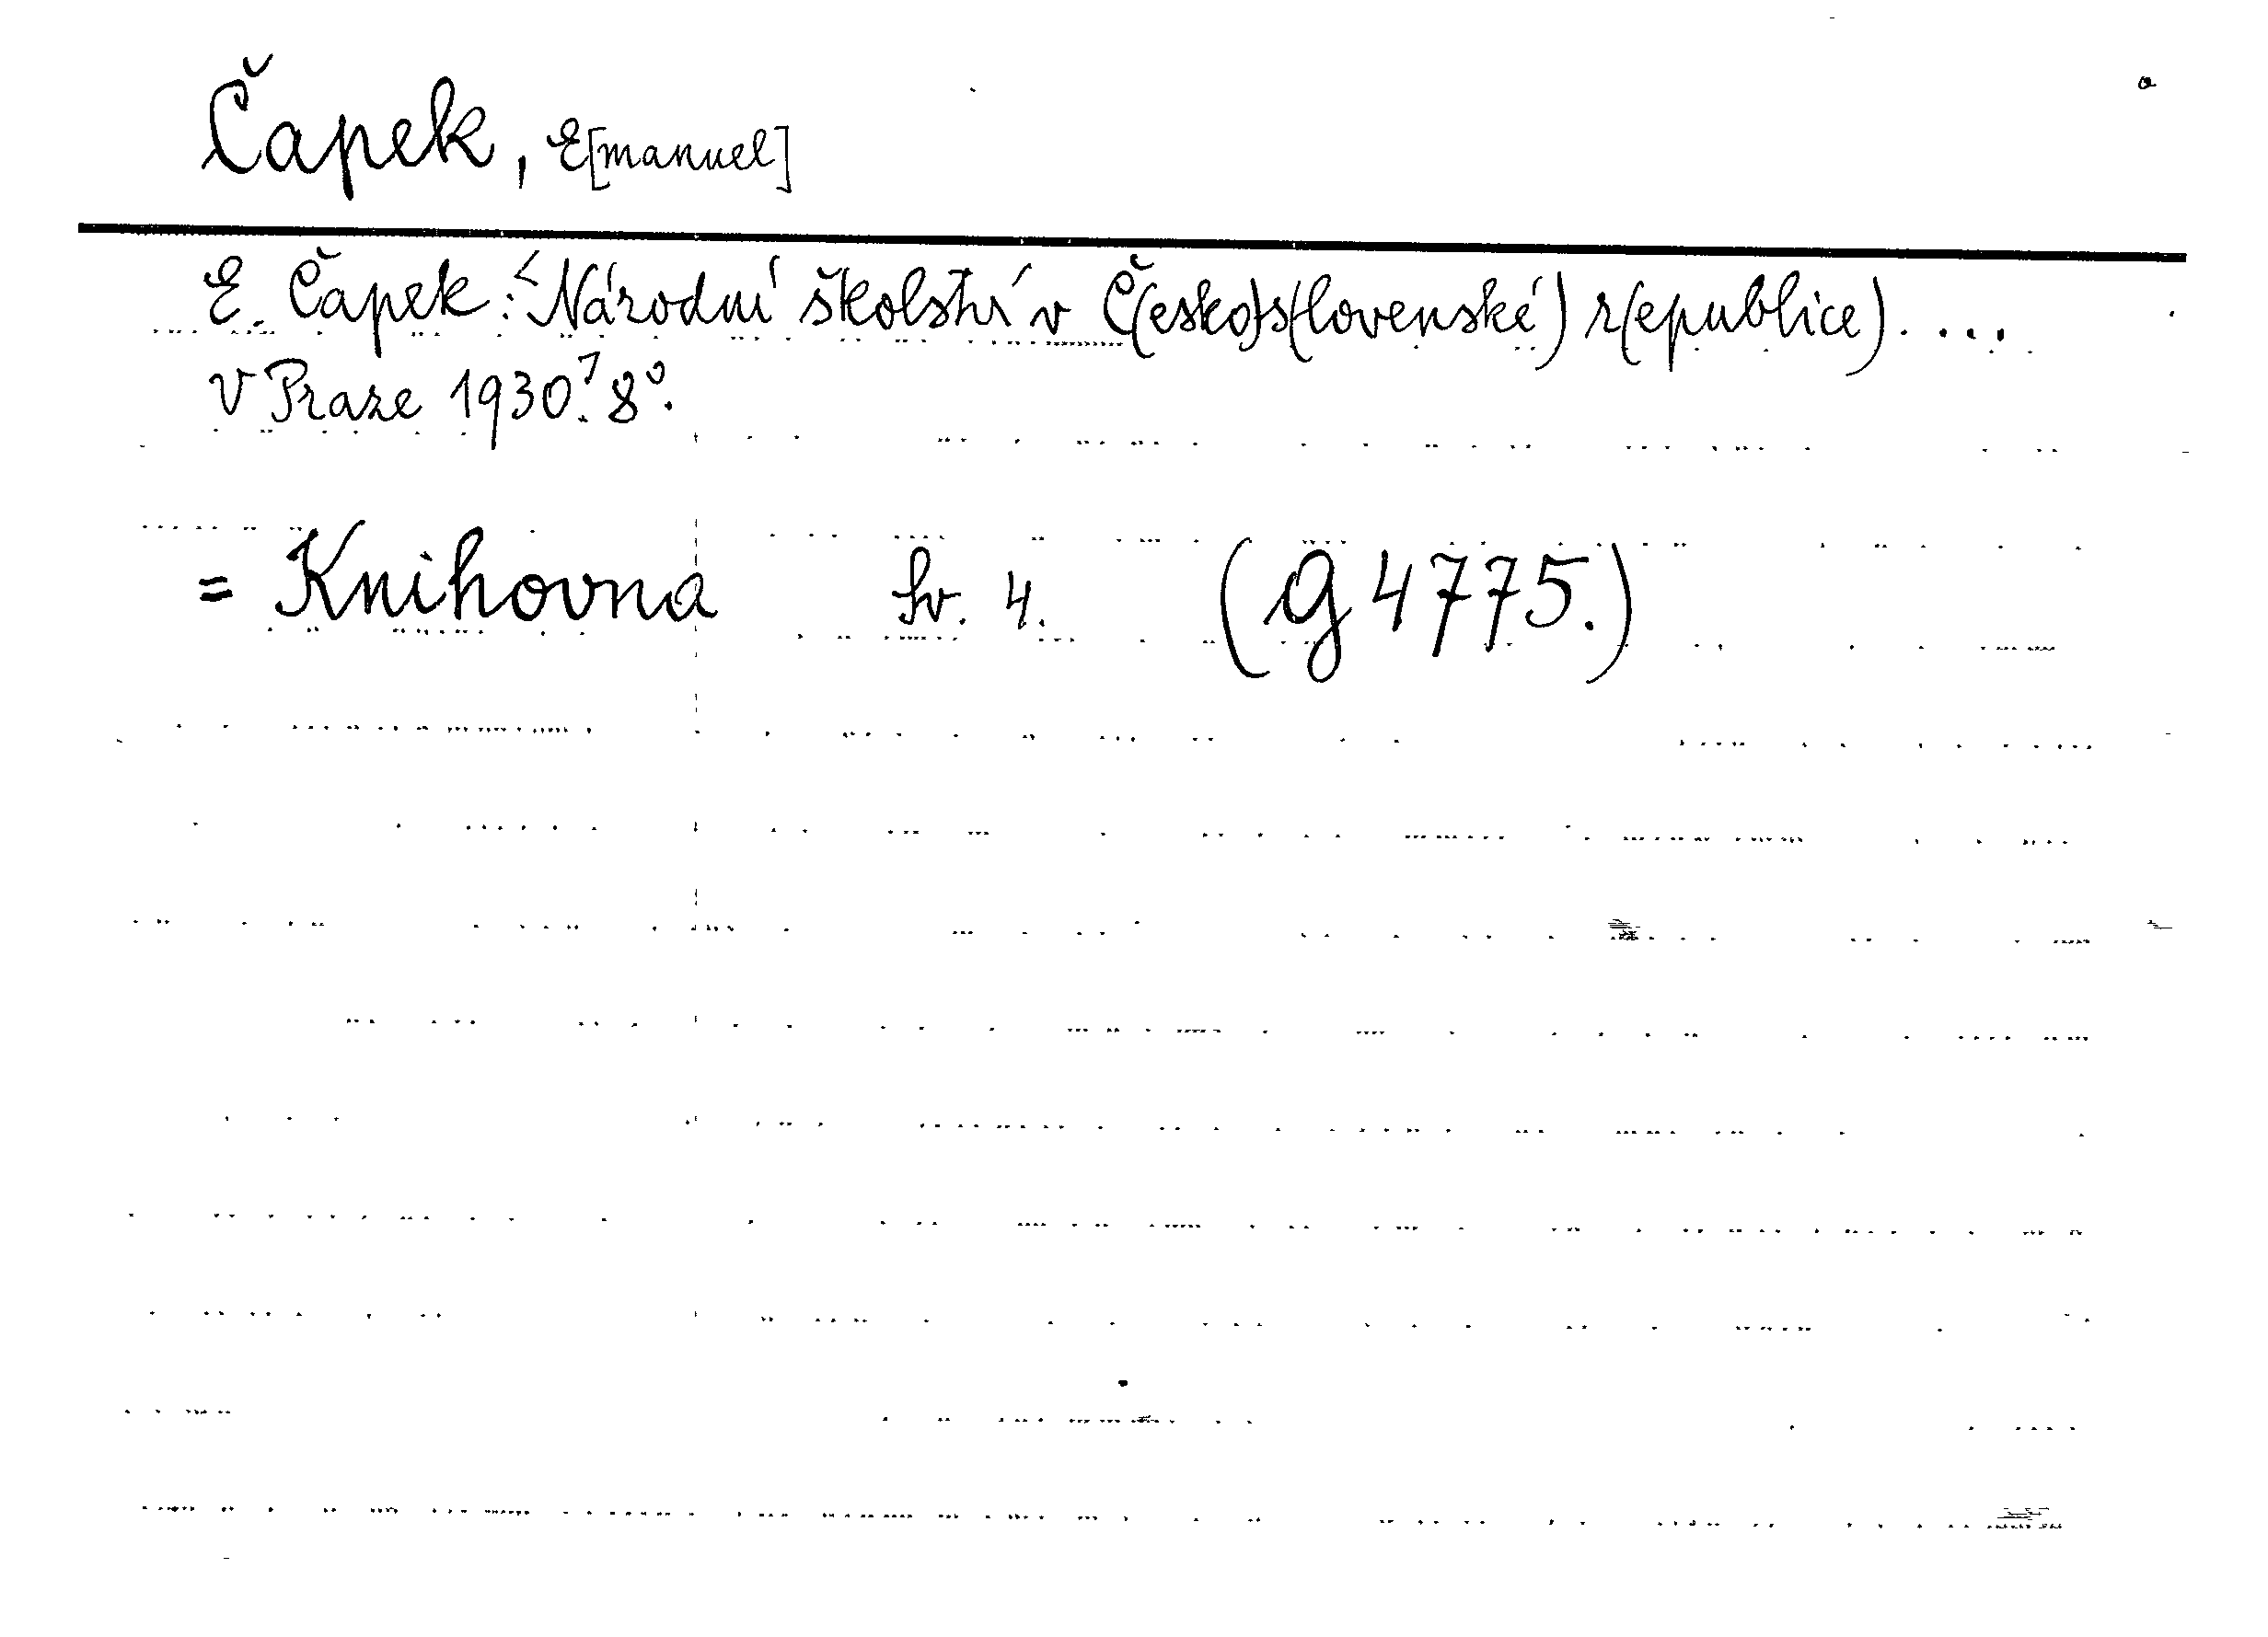 Čapek, E[manuel]
E. Čapek: <Národní školství v Č(esko)s(lovenské) r(epublice)....
V Praze 1930.> 8°.
= Knihovna Sv. 4. (G 4775.)